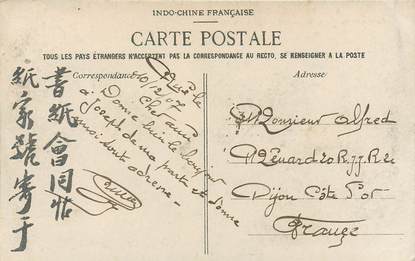 INDO-CHINE FRANÇAISE
CARTE POSTALE
TOUS LES PAYS ÉTRANGERS N'ACCEPTENT PAS LA CORRESPONDANCE AU RECTO, SE RENSEIGNER A LA POSTE
Correspondance
Adresse
書紙會同帖
紙家號寄于
10/12/07
Cher ami
Donne lui le bonjour
à Joseph de ma part et donne
moi son adresse
Monsieur Alfred
Dijon Côte d'or
France